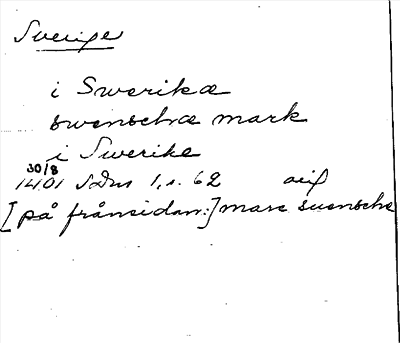 Sverige
i Swerikæ
swenschæ mark
i Swerike
30/8
1401 SDns 1, s. 62 avs
[på frånsidan:] marc suensche